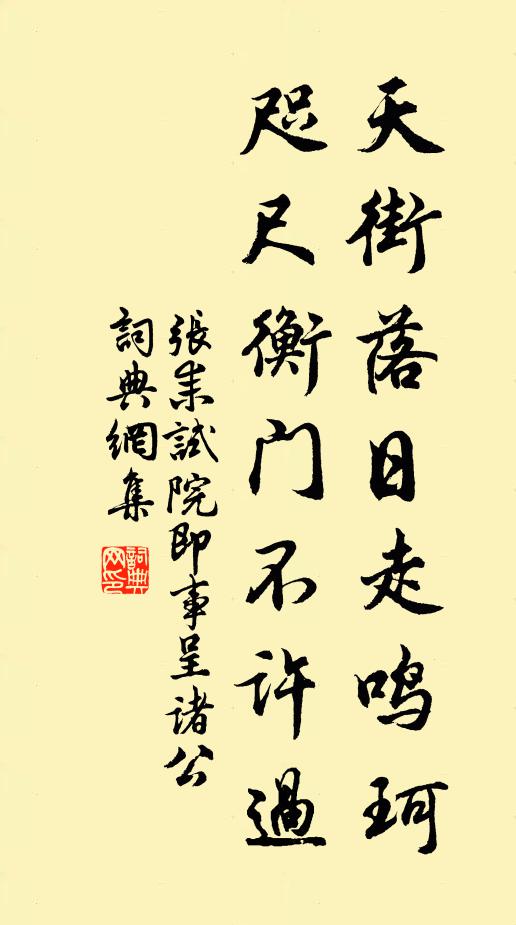 天街落日走鳴珂
咫尺衡門不許過
張耒試院即事呈諸公
詞典網集
詞典網印